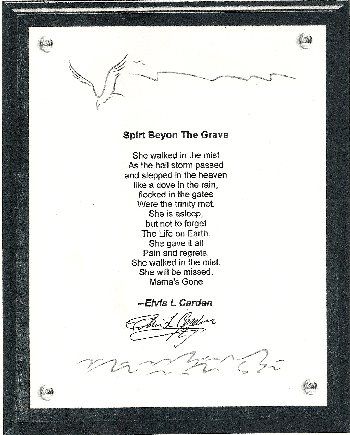 Spirt Beyon The Grave
She walked in the mist
As the hail storm passed
and stepped in the heaven
like a dove in the rain,
flocked in the gates
Were the trinity met.
She is asleep,
but not to forget
The Life on Earth.
She gave it all
Pain and regrets
She walked in the mist.
She will be missed.
Mama's Gone
--Elvis L Carden